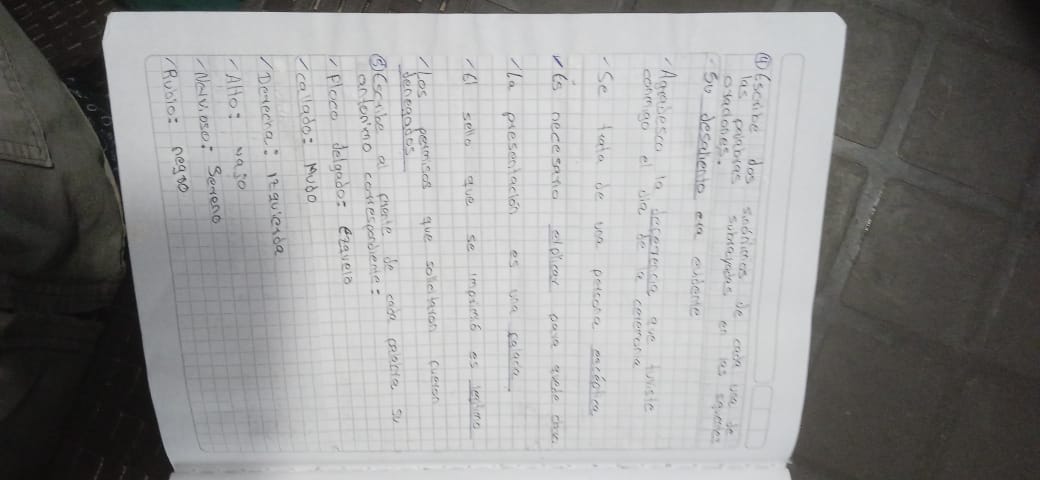 ④ Escribe dos sinónimos de cada una de
las palabras subrayadas en las siguientes
oraciones.
- Su desaliento era evidente
- Agradesco la deferencia que tuviste
conmigo el dia de la ceremonia
- Se trata de una persona escéptica
- Es necesario explicar para quede claro.
- La presentación es una falacia.
- El sello que se imprimió es legitimo
- Los permisos que solicitaron fueron
denegados
⑤ Escribe al frente de cada palabra su
antonimo correspondiente:
- Flaco delgado:
- callado: Mudo
- Derecha: izquierda
- Alto: vajo
- Nervioso: Sereno
- Rubio: negro